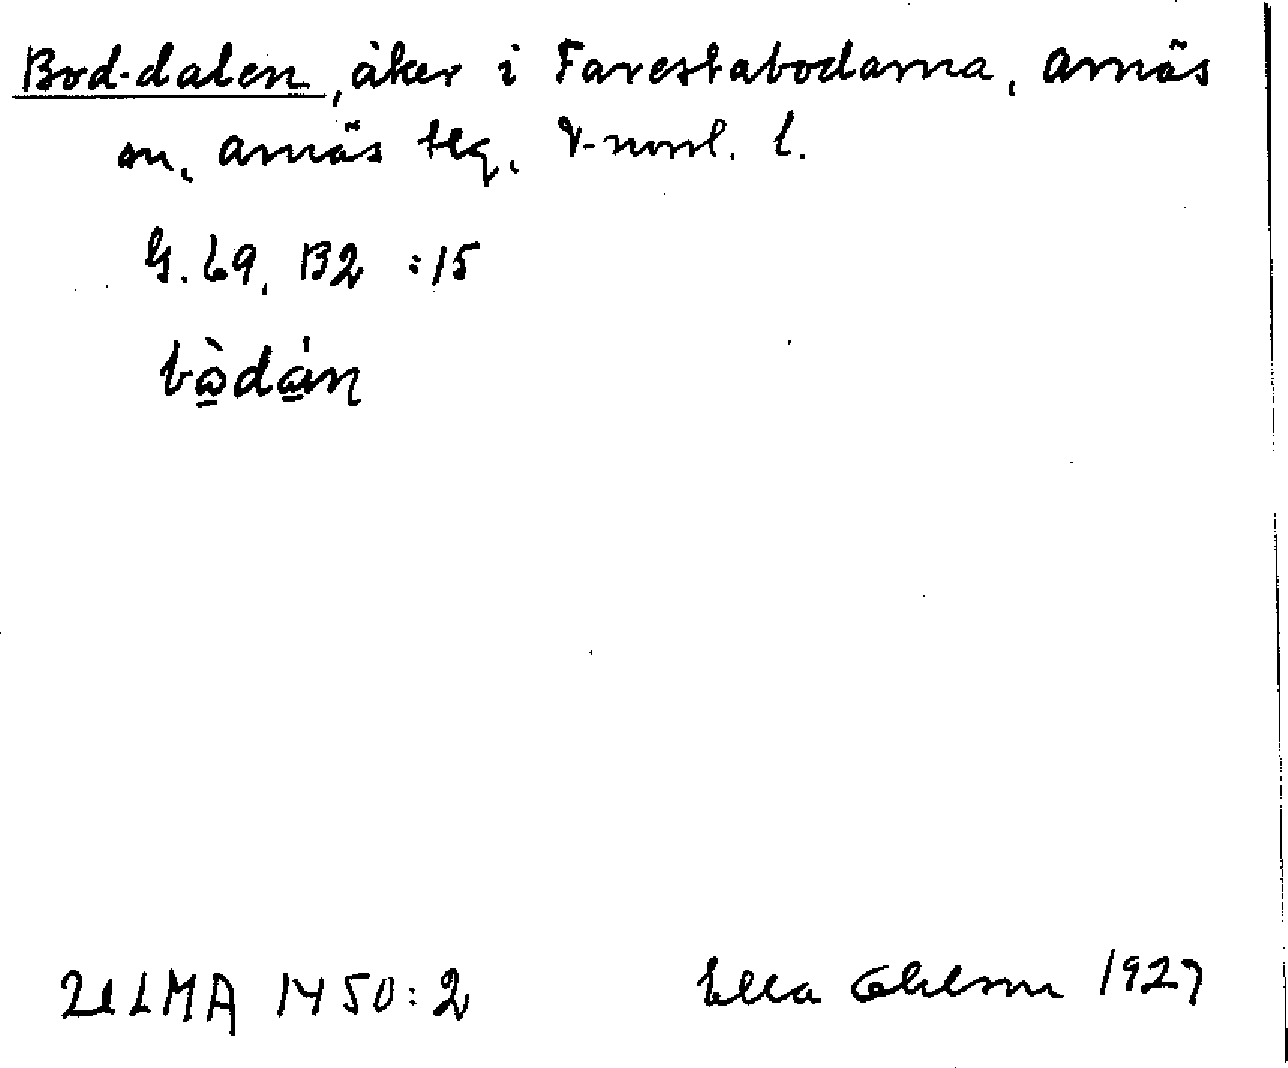 Bod-dalen, åker i Farestabodarna, Arnäs
sn, Arnäs tlg, V-norrl. l.
G. 69, B2 :15
bòdán
ULMA 1450:2
Ella Ohlson 1927